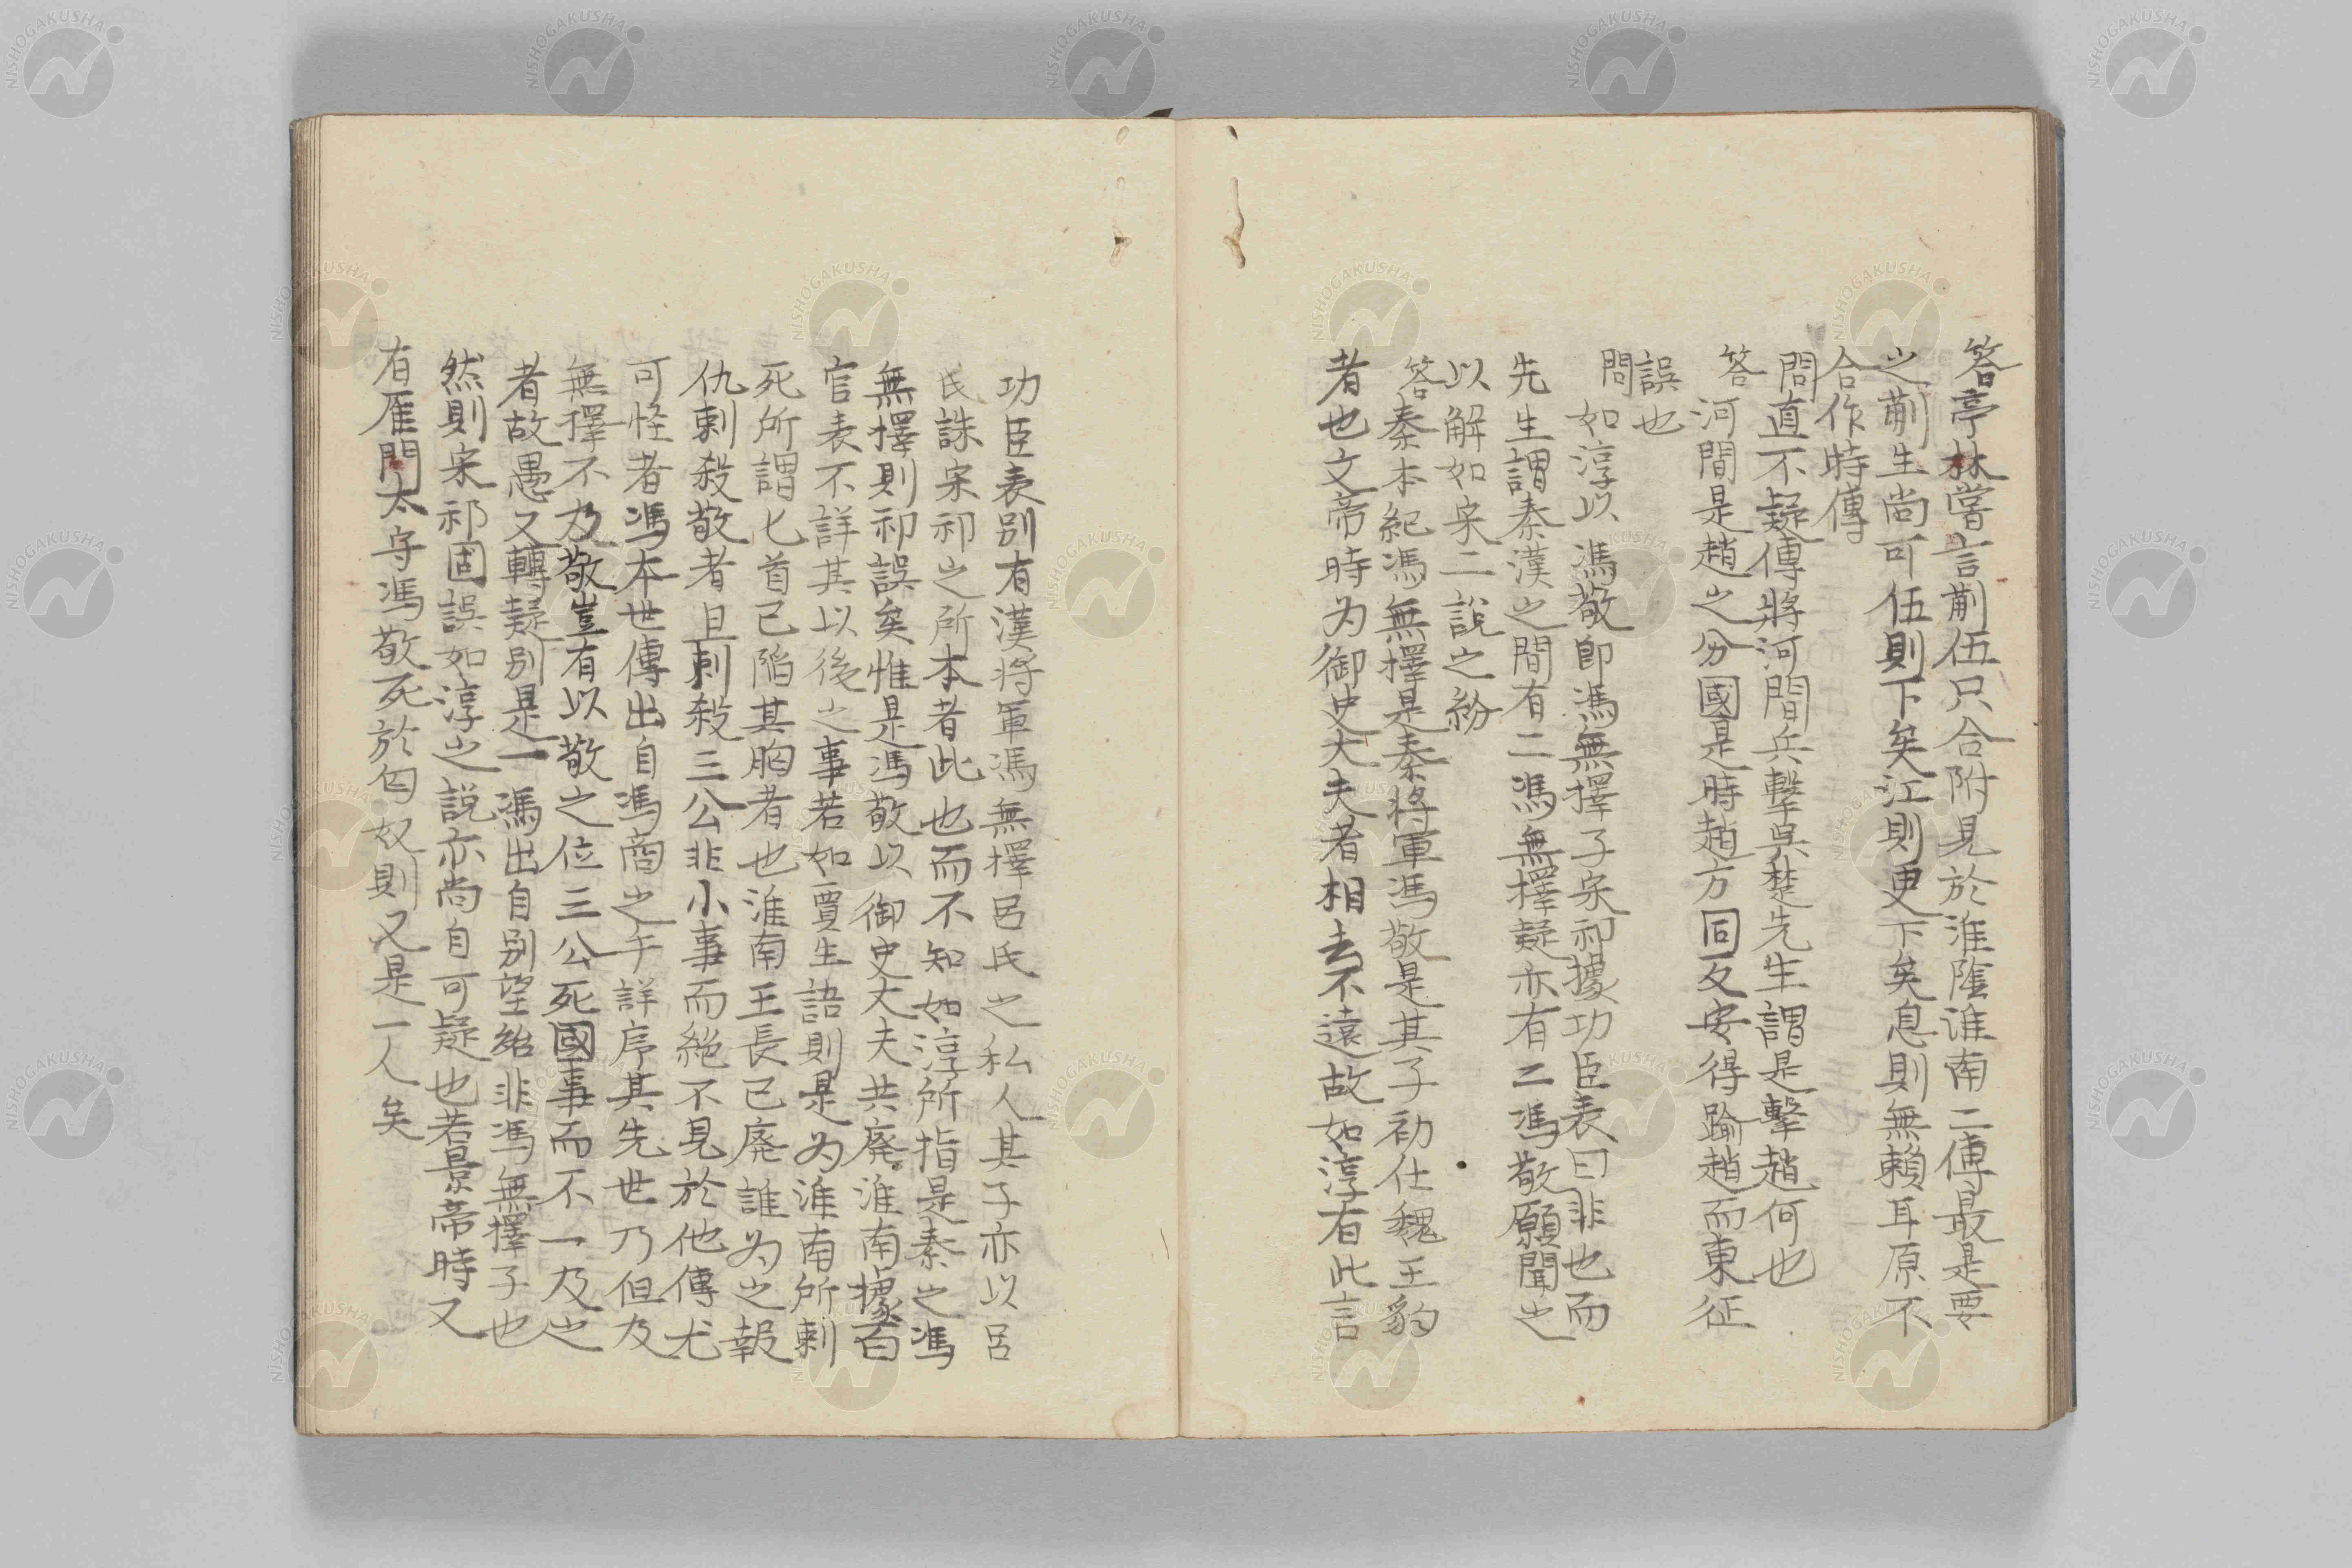 答亭林嘗言蒯伍只合附見於淮陰淮南二傳最是要
之蒯生尚可伍則下矣江則更下矣息則無賴耳原不
合作特傳
問直不疑傳將河間兵擊吳楚先生謂是擊趙何也
答河間是趙之分國是時趙方同反安得踰趙而東征
誤也
問如淳以馮敬即馮無擇子宋祁據功臣表曰非也而
先生謂秦漢之間有二馮無擇疑亦有二馮敬願聞之
以解如宋二說之紛
答秦本紀馮無擇是秦將軍馮敬是其子初仕魏王豹
者也文帝時为御史大夫者相去不遠故如淳有此言
功臣表别有漢將軍馮無擇呂氏之私人其子亦以呂
氏誅宋祁之所本者此也而不知如淳所指是秦之馮
無擇則祁誤矣惟是馮敬以御史大夫共廃淮南據百
官表不詳其以後之事若如賈生語則是为淮南所刺
死所謂匕首已陷其胸者也淮南王長已廃誰为之報
仇刺殺敬者且刺殺三公非小事而絕不見於他傳尤
可怪者馮本世傳出自馮商之手詳序其先世乃但及
無擇不及敬豈有以敬之位三公死國事而不一及之
者故愚又轉疑别是一馮出自别望始非馮無擇子也
然則宋祁固誤如淳之說亦尚自可疑也若景帝時又
有雁門太守馮敬死於匈奴則又是一人矣
NISHOGAKUSHA